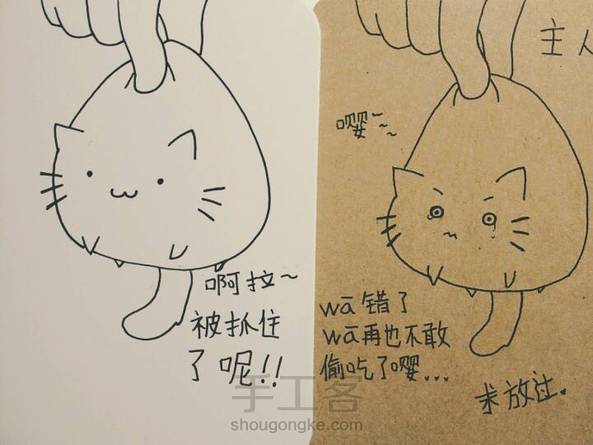 啊拉~
被抓住
了呢!!
主人
嘤~~~
wā错了
wā再也不敢
偷吃了嘤...
求放过.
手工客
shougongke.com